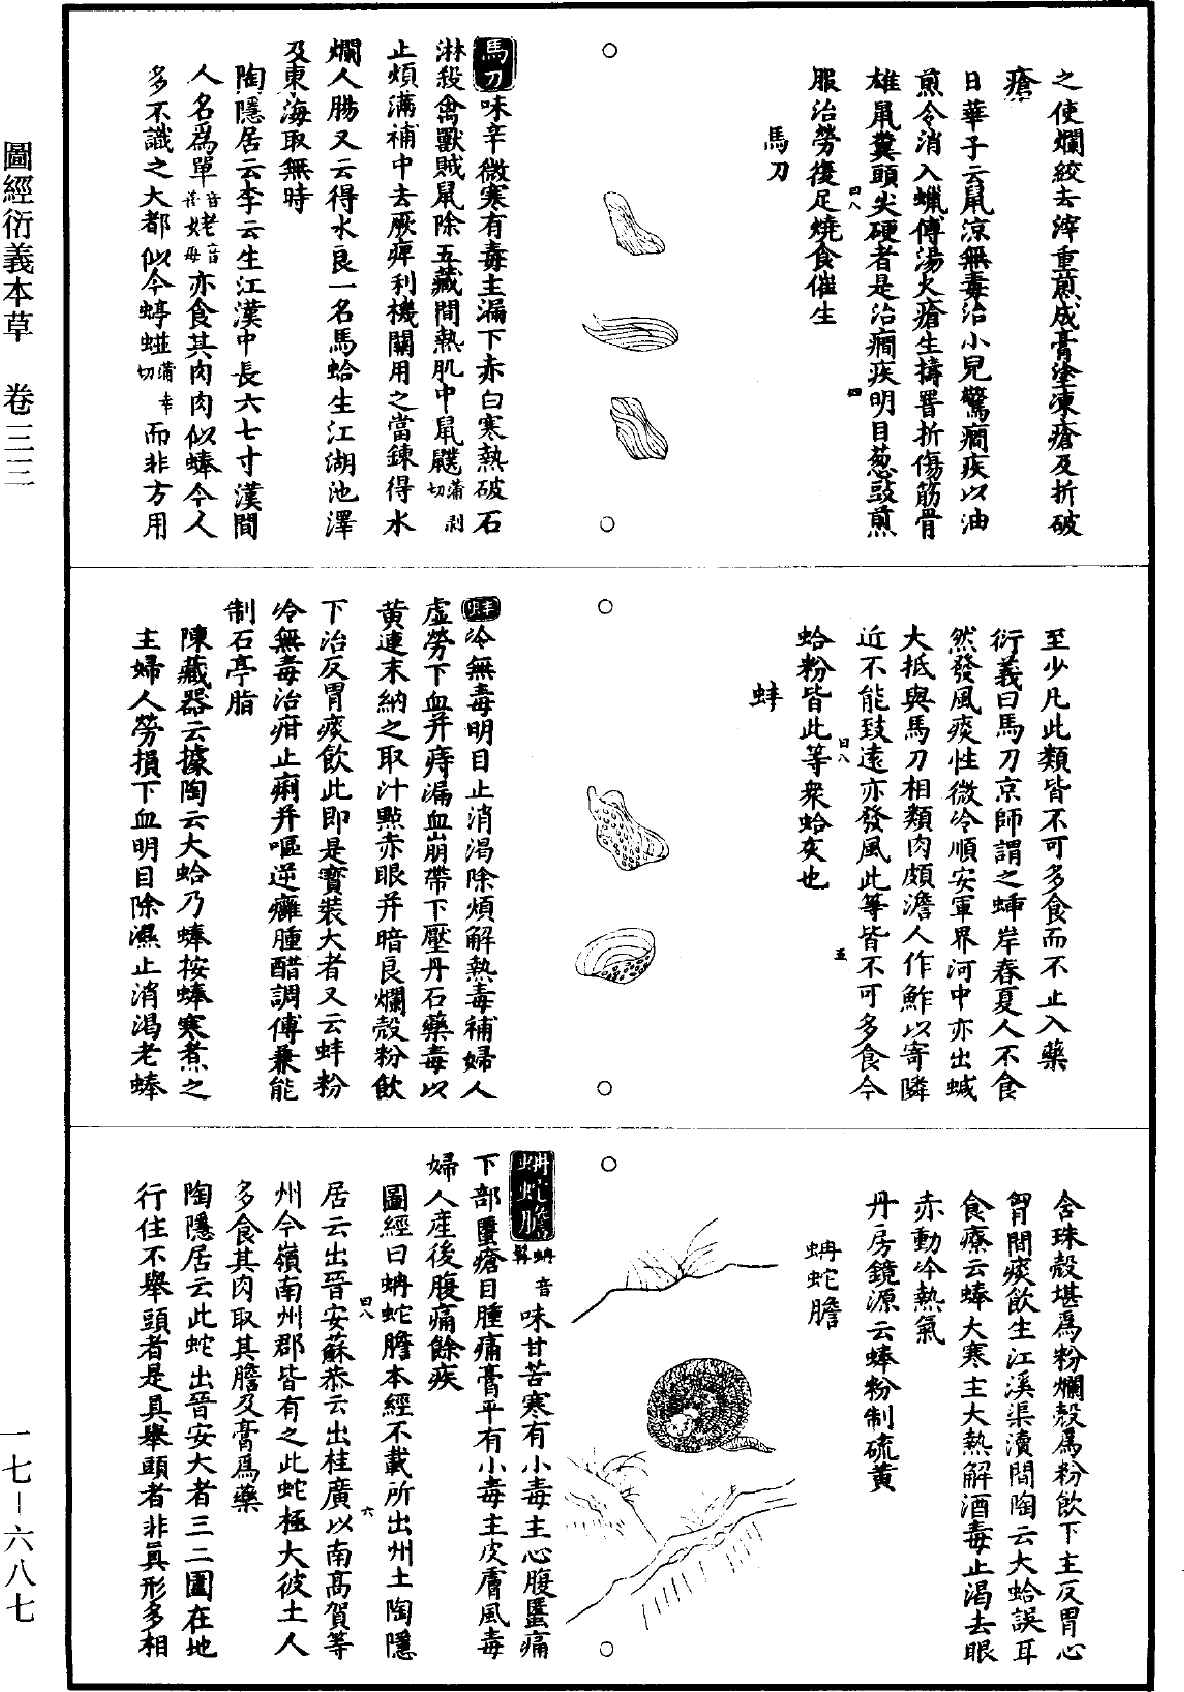 圖經衍義本草　卷三三
一七－六八七
之使爛絞去滓重煎成膏塗凍瘡及折破
瘡
日華子云鼠涼無毒治小兒驚癇疾以油
煎令消入蠟傅湯火瘡生擣罯折傷筋骨
雄鼠糞頭尖硬者是治癇疾明目葱豉煎
服治勞復足燒食催生
馬刀
馬刀味辛微寒有毒主漏下赤白寒熱破石
淋殺禽獸賊鼠除五藏間熱肌中鼠䑏蒲剥切
止煩滿補中去厥痺利機關用之當鍊得水
爛人腸又云得水良一名馬蛤生江湖池澤
及東海取無時
陶隱居云李云生江漢中長六七寸漢間
人名爲單音善姥音母亦食其肉肉似蜯今人
多不識之大都似今蝏𧋆蒲幸切而非方用
至少凡此類皆不可多食而不止入藥
衍義曰馬刀京師謂之𧎥岸春夏人不食
然發風痰性微冷順安軍界河中亦出蜮
大抵與馬刀相類肉頗澹人作鮓以寄隣
近不能致遠亦發風此等皆不可多食今
蛤粉皆此等衆蛤灰也
蚌
蚌冷無毒明目止消渴除煩解熱毒補婦人
虛勞下血并痔漏血崩帶下壓丹石藥毒以
黃連末納之取汁點赤眼并暗良爛殼粉飲
下治反胃痰飲此即是寶裝大者又云蚌粉
冷無毒治疳止痢并嘔逆癰腫醋調傅兼能
制石亭脂
陳藏器云據陶云大蛤乃蜯按蜯寒煮之
主婦人勞損下血明目除濕止消渴老蜯
含珠殼堪爲粉爛殼爲粉飲下主反胃心
胷間痰飲生江溪渠瀆間陶云大蛤誤耳
食療云蜯大寒主大熱解酒毒止渴去眼
赤動冷熱氣
丹房鏡源云蜯粉制硫黃
蚺蛇膽
蚺蛇膽蚺音髯味甘苦寒有小毒主心腹䘌痛
下部䘌瘡目腫痛膏平有小毒主皮膚風毒
婦人產後腹痛餘疾
圖經曰蚺蛇膽本經不載所出州土陶隱
居云出晉安蘇恭云出桂廣以南高賀等
州今嶺南州郡皆有之此蛇極大彼土人
多食其肉取其膽及膏爲藥
陶隱居云此蛇出晉安大者三二圍在地
行住不舉頭者是真舉頭者非真形多相